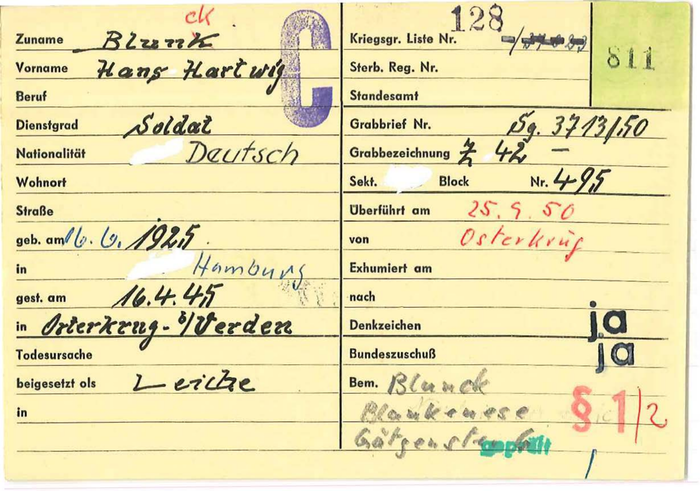 ck
Zuname Blunk
Vorname Hans Hartwig
Beruf
Dienstgrad Soldat
Nationalität Deutsch
Wohnort
Straße
geb. am 16. 6. 1925
in Hamburg
gest. am 16.4.45
in Osterkrug - b/Verden
Todesursache
beigesetzt als Leiche
in
C
128
Kriegsgr. Liste Nr.
811
Sterb. Reg. Nr.
Standesamt
Grabbrief Nr. Sg. 3713/50
Grabbezeichnung Z 42 –
Sekt. Block Nr. 495
Überführt am 25. 9. 50
von Osterkrug
Exhumiert am
nach
Denkzeichen ja
Bundeszuschuß ja
Bem. Blunck
Blankenese
§ 1/2
geprüft